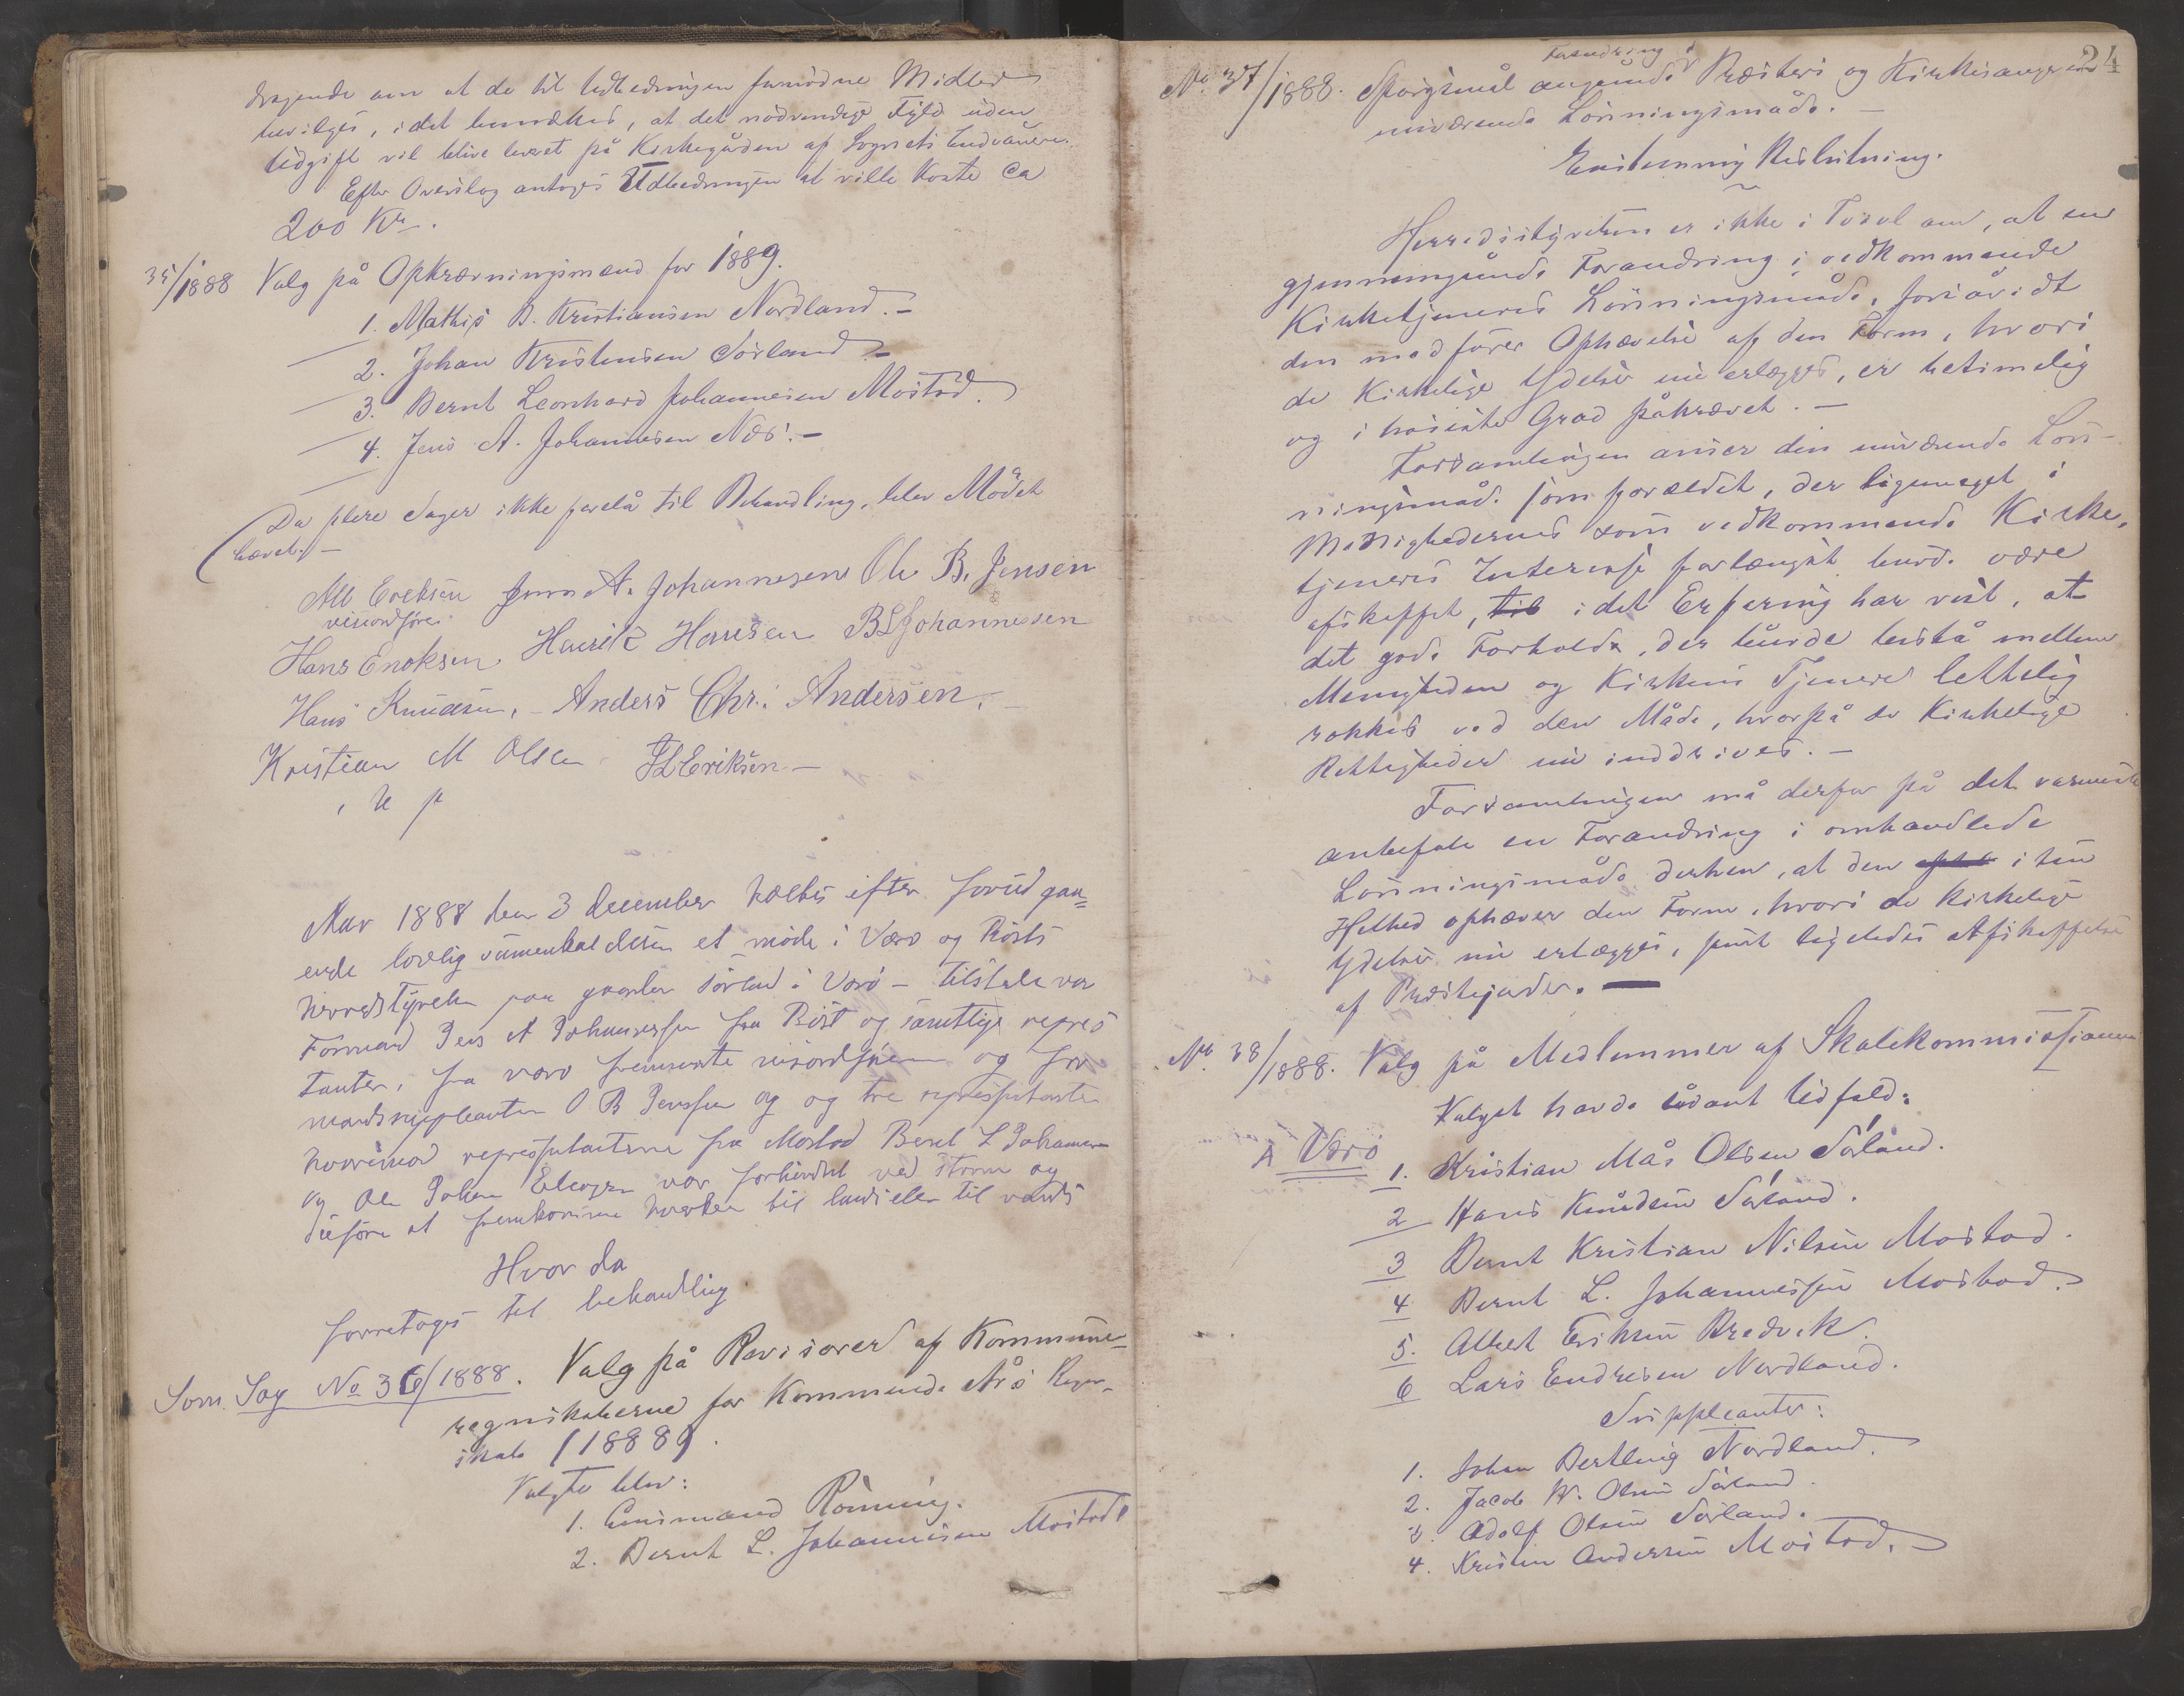 dragende om at de til Udbedringen fornødne Midler
bevilges, idet bemærkes, at det nødvendige Fyld uden
Udgift vil blive levert på Kirkegården af Sognets Indvånere.
Efter Overslag antages Udbedringen at ville koste ca
200 Kr.
35/1888 Valg på Opkrævningsmænd for 1889.
1. Mathis B. Kristiansen Nordland. -
2. Johan Kristensen Sörland -
3. Bernt Leonhard Johannesen Måstad.
4. Jens A. Johannesen Næs. -
Da flere Sager ikke forelå til Behandling, blev Mödet
hævet. -
Alb Eriksen Jens A. Johannesen Ole B. Jensen
viseordförer
Hans Enoksen. Henrik Hansen BLJohannesen
Hans Knudsen, - Anders Chr. Andersen, -
Kristian M Olsen JLEriksen -
Aar 1888 den 3 December holdtes efter forudgaa=
ende lovlig sammenkaldelse et möde i Værö og Rösts
herredstyrelse paa gaarden Sörland i Værö - tilstede var
Formand Jens A Johannessen fra Röst og samtlige repres
tanter, fra værö fremmødte viseordförer og for
mandssuppleanten O B Jenssen og og tre representanter
hvorimod representanterne fra Mostad Bernt L Johannesen
og Ole Johan var forhindret ved storm og
at fremkomme hverken til lands eller til vands
Hvor da
forretoges til behandling
Som Sag No 36/1888. Valg på Revisorer af Kommune-
regnskaberne for Kommende Års Regn-
skab (1888).
Valgte blev:
1. Rönning.
2. Bernt L. Johannesen Måstad
24
No. 37/1888. Spörgsmål angående Forandring i Præsters og Kirkesangeres
nuværende Lönningsmåde. -
Enstemmig Beslutning.
Herredsstyrelsen er ikke i Tvivl om, at en
gjennemgående Forandring i vedkommende
Kirketjeneres Lönningsmåde, forsåvidt
den medförer Ophævelse af den Form, hvori
de Kirkelige Ydelser nu erlægges, er betimelig
og i höieste Grad påkrævet. -
Forsamlingen anser den nuværende Lön-
ningsmåde som forældet, der ligemeget i
Menighedernes som vedkommende Kirke-
tjeneres Interesse forlængst burde være
afskaffet, idet Erfaring har vist, at
det gode Forhold, der burde bestå mellem
Menigheden og Kirkens Tjenere lettelig
rokkes ved den Måde, hvorpå de Kirkelige
Rettigheder nu inddrives. -
Forsamlingen må derfor på det varmeste
anbefale en Forandring i omhandlede
Lönningsmåde derhen, at den i sin
Helhed ophæver den Form, hvori de Kirkelige
Ydelser nu erlægges, samt ligeledes Afskaffelse
af Præstejorder. -
No. 38/1888. Valg på Medlemmer af Skatekommissionen
Valget havde sådant Udfald:
A Værö
1. Kristian Mås Olsen Sörland.
2 Hans Knudsen Sörland.
3 Bernt Kristian Nilsen Måstad.
4 Bernt L. Johannessen Måstad.
5. Albert Eriksen Bredvik.
6 Lars Endresen Nordland.
Suppleanter:
1. Johan Bertling Nordland.
2. Jacob W. Olsen Sörland.
3. Adolf Olsen Sörland.
4. Kristen Andersen Måstad.